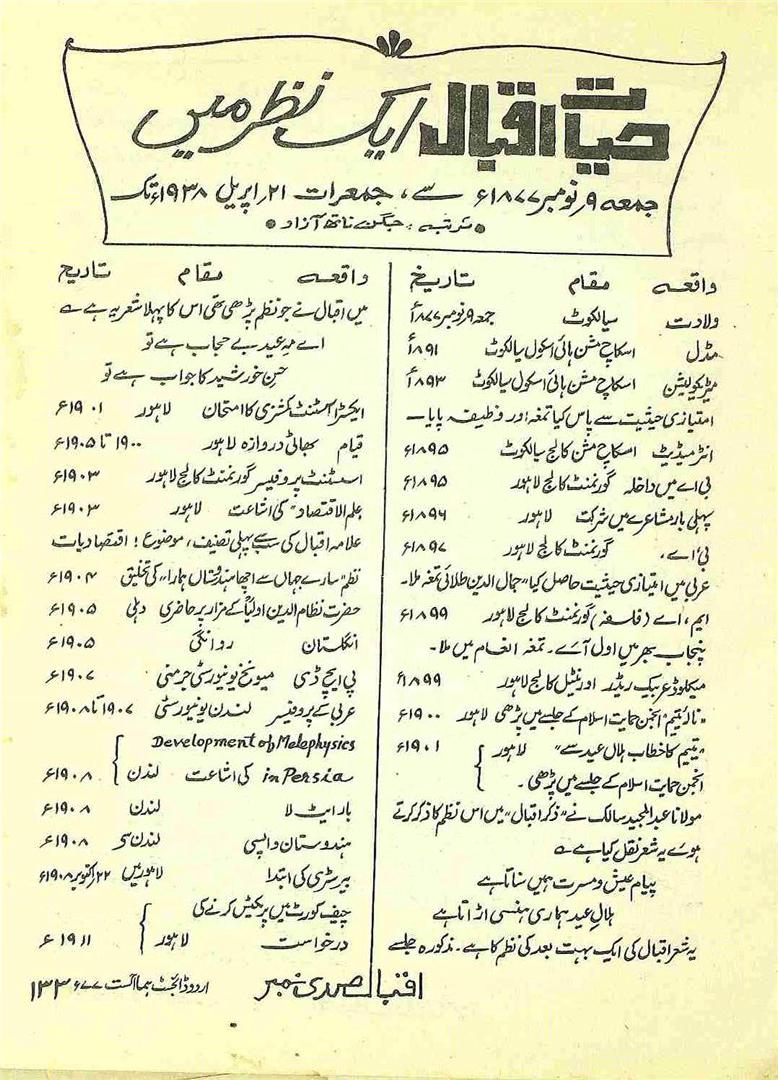 حیات اقبال ایک نظر میں
جمعہ ۹؍ نومبر ۱۸۷۷ء سے، جمعرات ۲۱؍ اپریل ۱۹۳۸ء تک
• مرتبہ: جگن ناتھ آزاد •
واقعہ مقام تاریخ
ولادت سیالکوٹ جمعہ ۹ نومبر ۱۸۷۷ء
مڈل اسکاچ مشن ہائی اسکول سیالکوٹ ۱۸۹۱ء
میٹریکولیشن اسکاچ مشن ہائی اسکول سیالکوٹ ۱۸۹۳ء
امتیازی حیثیت سے پاس کیا تمغہ اور وظیفہ پایا۔
انٹرمیڈیٹ اسکاچ مشن کالج سیالکوٹ ۱۸۹۵ء
بی اے میں داخلہ گورنمنٹ کالج لاہور ۱۸۹۵ء
پہلی بار مشاعرے میں شرکت لاہور ۱۸۹۶ء
بی اے، گورنمنٹ کالج لاہور ۱۸۹۷ء
عربی میں امتیازی حیثیت حاصل کیا "جمال الدین طلائی تمغہ ملا۔
ایم، اے (فلسفہ) گورنمنٹ کالج لاہور ۱۸۹۹ء
پنجاب بھر میں اول آئے۔ تمغہ انعام میں ملا۔
میکلوڈ عربک ریڈر اورنٹیل کالج لاہور ۱۸۹۹ء
"نالۂ یتیم" انجمن حمایت اسلام کے جلسے میں پڑھی لاہور ۱۹۰۰ء
"یتیم کا خطاب ہلال عید سے" لاہور ۱۹۰۱ء
انجمن حمایت اسلام کے جلسے میں پڑھی۔
مولانا عبدالمجید سالک نے "ذکر اقبال" میں اس نظم کا ذکر کرتے
ہوے یہ شعر نقل کیا ہے ؎
پیام عیش و مسرت ہمیں سناتا ہے
ہلال عید ہماری ہنسی اڑاتا ہے
یہ شعر اقبال کی ایک بہت بعد کی نظم کا ہے۔ مذکورہ جلسے
واقعہ مقام تاریخ
میں اقبال نے جو نظم پڑھی تھی اس کا پہلا شعر یہ ہے ؎
اے مہ عید بے حجاب ہے تو
حسن خورشید کا جواب ہے تو
ایکسٹرا اسٹنٹ کمشنری کا امتحان لاہور ۱۹۰۱ء
قیام بھاٹی دروازہ لاہور ۱۹۰۰ تا ۱۹۰۵ء
اسسٹنٹ پروفیسر گورنمنٹ کالج لاہور ۱۹۰۳ء
علم الاقتصاد" کی اشاعت لاہور ۱۹۰۳ء
علامہ اقبال کی سب سے پہلی تصنیف، موضوع: اقتصادیات
نظم "سارے جہاں سے اچھا ہندوستاں ہمارا" کی تخلیق ۱۹۰۴ء
حضرت نظام الدین اولیاؒ کے مزار پر حاضری دہلی ۱۹۰۵ء
انگلستان روانگی ۱۹۰۵ء
پی ایچ ڈی میونخ یونیورسٹی جرمنی ۱۹۰۷ء
عربی کے پروفیسر لندن یونیورسٹی ۱۹۰۷ تا ۱۹۰۸ء
Development of Metephysics
in Persia کی اشاعت لندن ۱۹۰۸ء
بار ایٹ لا لندن ۱۹۰۸ء
ہندوستان واپسی لندن سے ۱۹۰۸ء
بیرسٹری کی ابتدا لاہور میں ۲۲ اکتوبر ۱۹۰۸ء
چیف کورٹ میں پریکٹس کرنے کی
درخواست لاہور ۱۹۱۱ء
اقبال صدی نمبر
اردو ڈائجسٹ ہما اگست ۷۷ء ۱۳۳